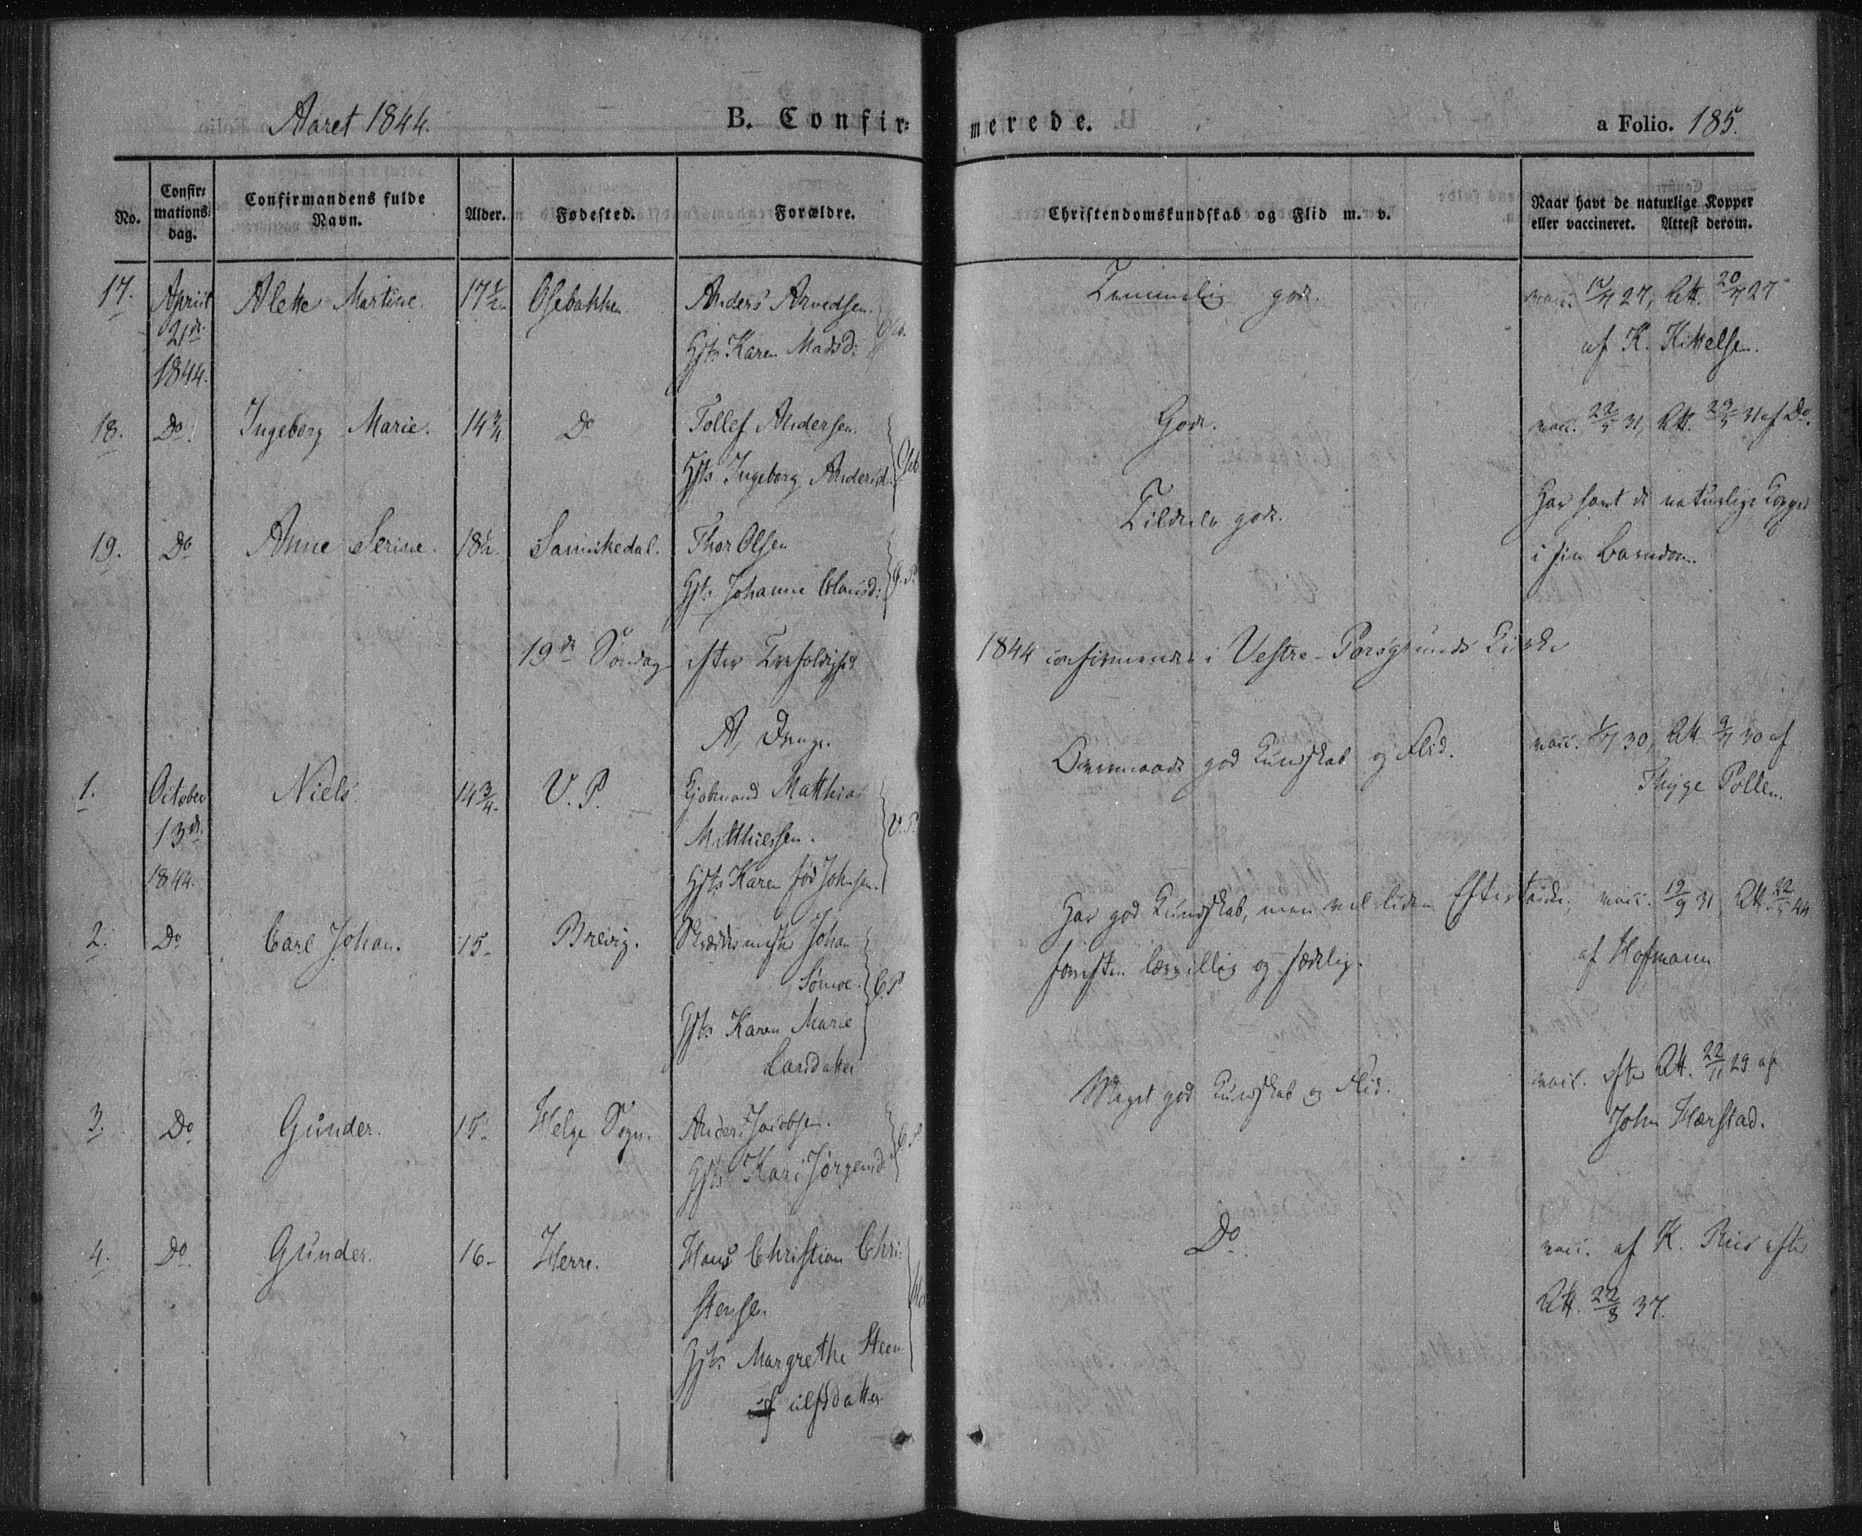 Aaret 1844.
B. Confirmerede.
a Folio. 185.
No.
Confirmations dag.
Confirmandens fulde Navn.
Alder.
Fødested.
Forældre.
Christendomskundskab og Flid m. v.
Naar havt de naturlige Kopper eller vaccineret. Attest derom.
17. April 21de 1844. Alette Martine. 17½ Osebakken
Anders Arvedsen.
Hst: Karen Madsd:
Temmelig god.
vacc. 27, Att. 27
af K. Kittelsen.
18. Do. Ingeborg Marie. 14¾ Do
Tollef Andersen
Hst: Ingeborg Andersd.
God.
vacc. 31, Att. 31 af Do.
19. Do Anne Serine. 18½ Sannikedal.
Thor Olsen
Hst: Johanne Clausd:
Tildels god.
Har havt de naturlige Kopper
i sin Barndom.
19de Søndag efter Trefoldighed 1844 confirmerede i Vestre-Porsgrunds Kirke
A, Drenge.
1. October 13de 1844. Niels. 14¾ V. P.
Kjøbmand Matthias
Matthiessen.
Hst: Karen fød Johnsen.
V. P.
Overmaade god Kundskab og Flid.
vacc. 30, Att. 9/7 30 af
Thyge Pollen.
2. Do Carl Johan. 15- Brevig.
Skræddermester Johan
Hst: Karen Marie
Larsdatter
Har god Kundskab, men vel liden Eftertanke,
forresten lærvillig og sædelig.
vacc. 19/9 31 Att. 44
af Hofmann
3. Do Gunder. 15- Helge Sogn.
Anders Jacobsen.
Hst: Kari Jørgensd:
Meget god Kundskab og Flid.
vacc. efter Att. 22/11 29 af
John Hærstad.
4. Do. Gunder. 16- Herre.
Hans Christian Chri-
stensen
Hst: Margrethe Steen
ulfsdatter
Do.
vacc. af K. Riis efter
Att. 22/8 37.